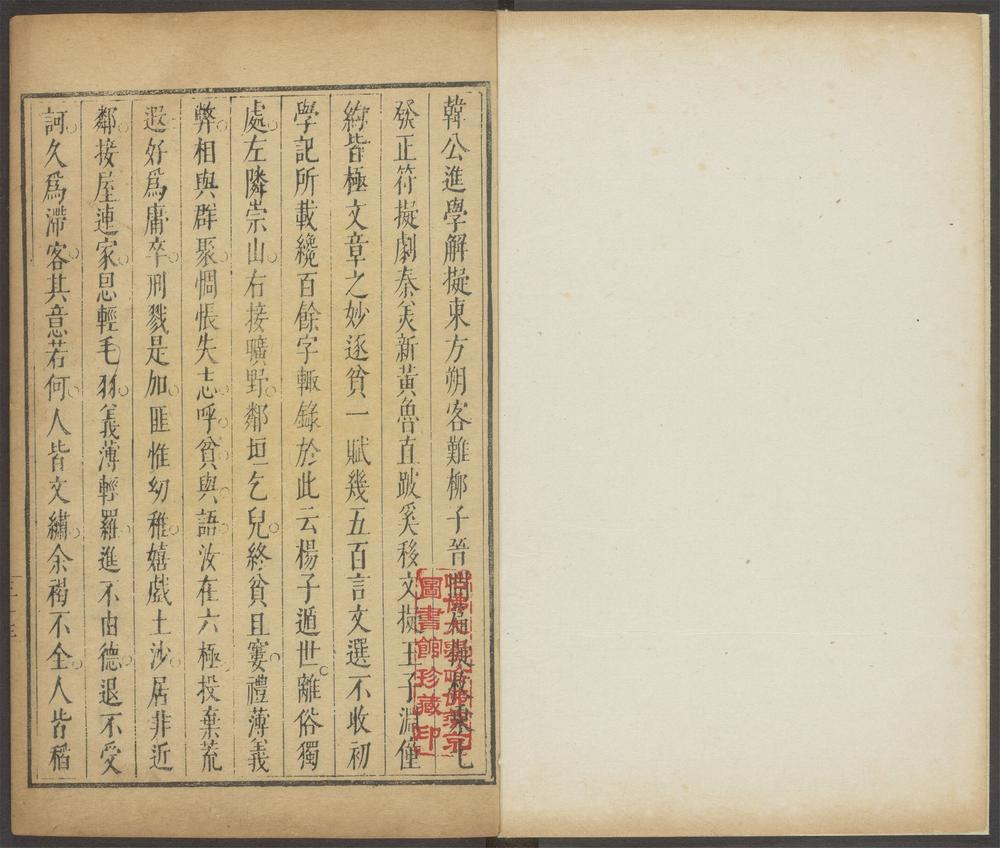 韓公進學解擬東方朔客難柳子晉問
發正符擬劇秦美新黃魯直跛奚移文擬王子淵僮
約皆極文章之妙逐貧一賦幾五百言文選不收初
學記所載纔百餘字輙錄於此云楊子遁世離俗獨
處左隣崇山右接曠野鄰垣乞兒終貧且窶禮薄義
弊相與群聚惆悵失志呼貧與語汝在六極投棄荒
遐好為庸卒刑戮是加匪惟幼稚嬉戲土沙居非近
鄰接屋連家恩輕毛羽義薄輕羅進不由德退不受
訶久為滯客其意若何人皆文繡余褐不全人皆稻
圖書館珍藏印